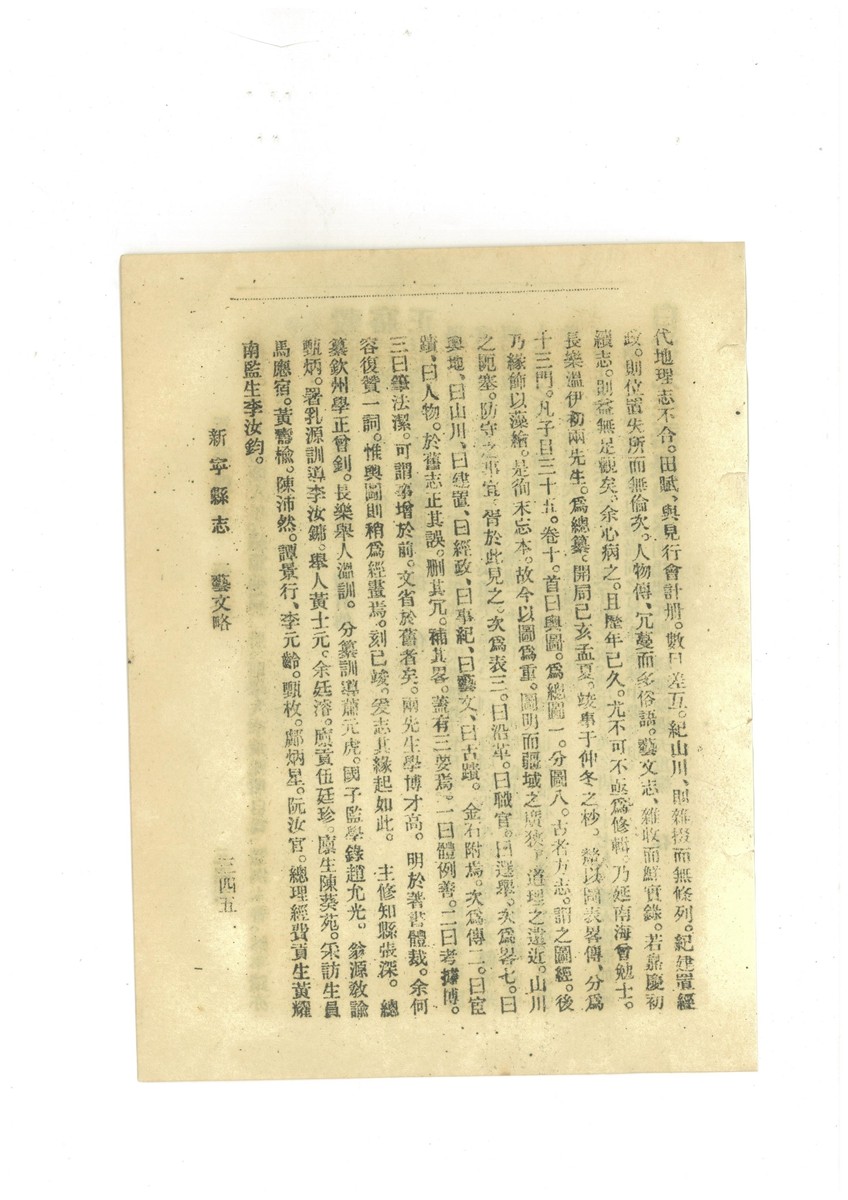 代地理志不合。田賦、與見行會計册。數目差互。紀山川、則雜掇而無條列。紀建置經
政。則位置失所而無倫次。人物傳、冗蔓而多俗語。藝文志、雜收而鮮實錄。若嘉慶初
續志。則益無足觀矣。余心病之。且歷年已久。尤不可不亟爲修輯。乃延南海曾勉士。
長樂溫伊初兩先生。爲總纂。開局己亥孟夏。竣事于仲冬之杪。釐以圖表畧傳、分爲
十三門。凡子目三十五。卷十。首曰輿圖。爲總圖一。分圖八。古者方志。謂之圖經。後
乃緣飾以藻繪。是徇末忘本。故今以圖爲重。圖明而疆域之廣狹、道理之遠近。山川
之阨塞。防守之事宜、胥於此見之。次爲表三。曰沿革。曰職官。曰選舉。次爲畧七。曰
輿地、曰山川、曰建置、曰經政、曰事紀、曰藝文、曰古蹟。金石附焉。次爲傳二。曰宦
蹟、曰人物。於舊志正其誤。删其冗。補其畧。蓋有三要焉。一曰體例善。二曰考據博。
三曰筆法潔。可謂事增於前。文省於舊者矣。兩先生學博才高。明於著書體裁。余何
容復贊一詞。惟輿圖則稍爲經畫焉。刻已竣。爰志其緣起如此。 主修知縣張深。總
纂欽州學正曾釗。長樂舉人溫訓。分纂訓導蕭元虎。國子監學錄趙允光。翁源敎諭
甄炳。署乳源訓導李汝鏞。舉人黃士元。余廷濬。廩貢伍廷珍。廩生陳葵苑。采訪生員
馬應宿。黃壽楡。陳沛然。譚景行、李元齡。甄枚。鄺炳星。阮汝官。總理經費貢生黃耀
南監生李汝鈞。
新寧縣志 藝文略 三四五